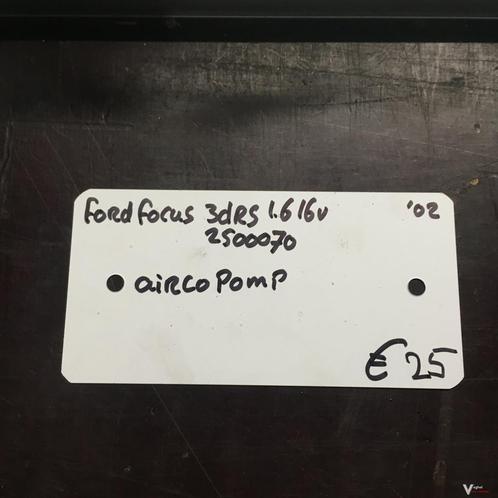 Ford Focus 3dRS 1.6 16v '02
2500070
aircopomp
€ 25